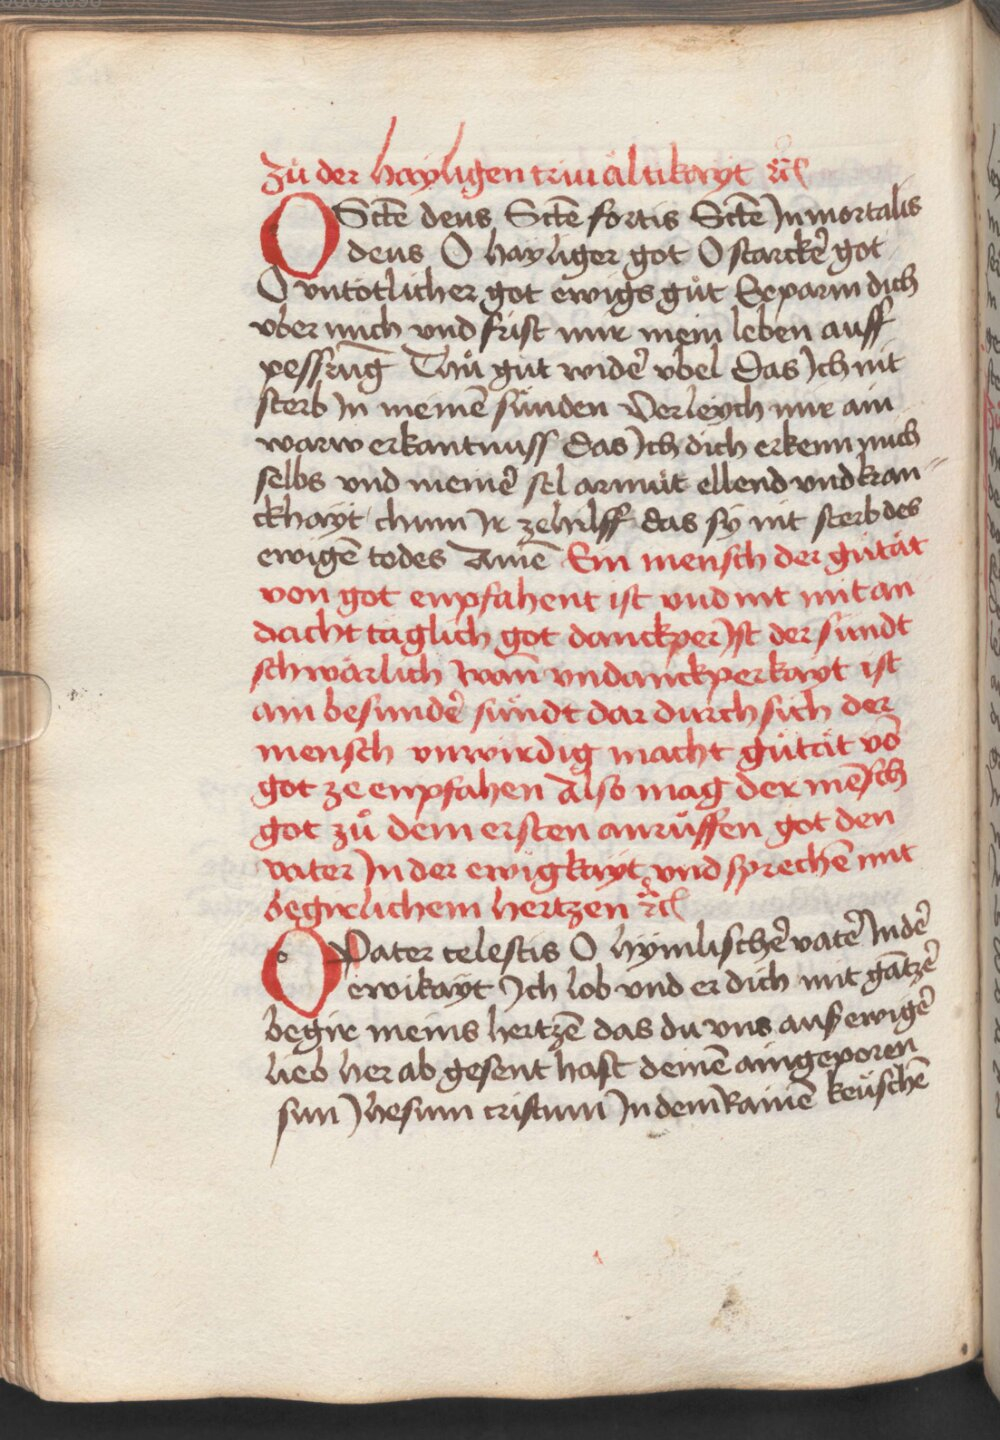 Zů der hayligen triualtikayt ꝛc̃
O Scte deus Scte fortis Scte Inmortalis
deus O hayliger got O starckē got
O vntotlicher got ewigs gůt Erparm dich
vber mich vnd frist mir mein leben auff
pessrūg Thů gut widē vbel das Ich nit
sterb In meinē sünden Verleych mir ain
warw erkantnuss das Ich dich erkenn mich
selbs vnd meinē sel armüt ellend vnd kran
ckhayt chum Ir zehilff das sy nit sterb des
ewigē todes Amē Ein mensch der gůtät
von got enpfahent ist vnd nit mit an
dacht täglich got danckper Ist der sundt
schwärlich wañ vndanckperkayt ist
ain besundē sündt dardurch sich der
mensch vnwirdig macht gůtät vō
got ze enpfahen Also mag der mēsch
got zů dem ersten anrůffen got den
vater In der ewigkayt vnd sprechē mit
begirlichem hertzen ꝛc̃
O Pater celestis O hymlischē vatē In dē
ewikayt Ich lob vnd er dich mit gātzē
begir meins hertzē das du vns aus ewigē
lieb her ab gesent hast deinē aingeporen
sun Ihesum cristum In dem rainē keüschē